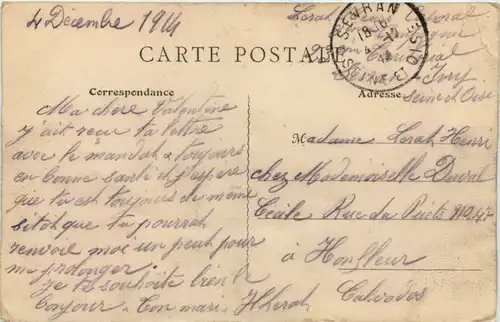 4 Décembre 1914
Lerat Henri Caporal
Ivry
Seine et Oise
SEVRAN
CARTE POSTALE
Correspondance
Adresse
Ma chère Valentine
j'ait reçu ta lettre
avec le mandat toujours
en bonne santé et j'espère
que tu est toujours de même
sitot que tu pourrat
renvoie moi un peut pour
me prolonger.
Je te souhaite bien le
bonjour. Ton mari. H Lerat
Madame Lerat Henri
chez Mademoiselle Duval
Cécile Rue du Puits No 47
à Honfleur
Calvados